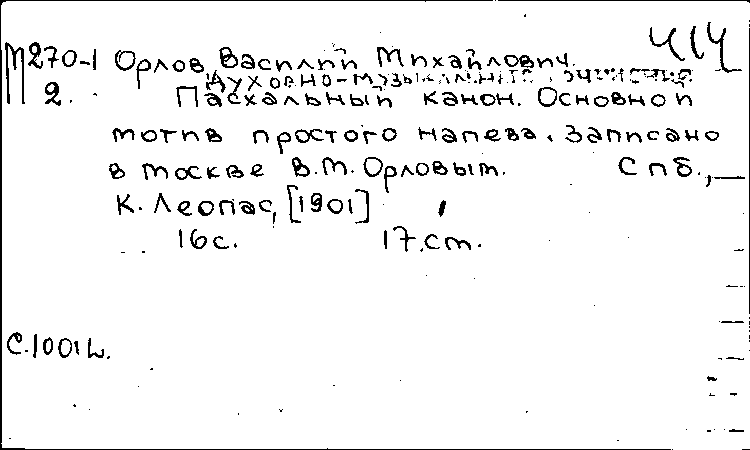 М270-1 Орлов Василий Михайлович. 414
Духовно-музыкальные сочинения
2. Пасхальный канон. Основной
мотив простого напева. Записано
в Москве В.М. Орловым. Спб.,—
К. Леопас, [1901]
16 с. 17. ст.
С.1001